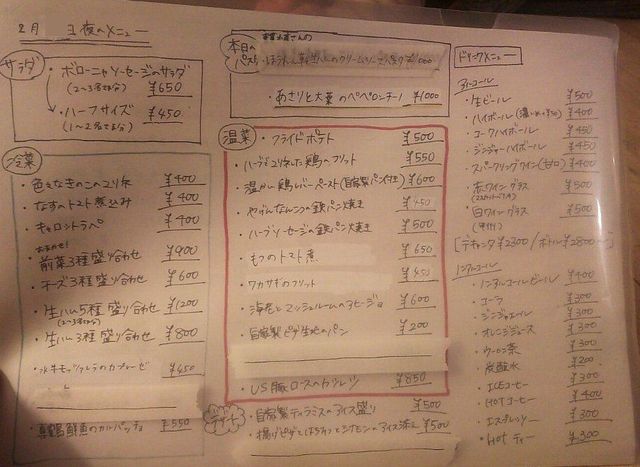 2月 夜のメニュー
サラダ
・ボローニャソーセージのサラダ
(2〜3名さま分) ¥650
・ハーフサイズ ¥450
(1〜2名さま分)
冷菜
・色々なきのこのマリネ ¥400
・なすのトマト煮込み ¥400
・キャロットラペ ¥400
おまかせ!
・前菜3種盛り合わせ ¥900
・チーズ3種盛り合わせ ¥600
・生ハム5種盛り合わせ ¥1200
(2〜3名さま分)
・生ハム3種盛り合わせ ¥800
・水牛モッツァレラのカプレーゼ ¥450
真鶴鮮魚のカルパッチョ ¥550
本日のパスタ
¥1000
・あさりと大葉のペペロンチーノ ¥1000
温菜
・フライドポテト ¥500
・ハーブでマリネした鶏のフリット ¥550
・温かい鶏レバーペースト(自家製パン付き) ¥600
・やげんなんこつの鉄パン焼き ¥450
・ハーブソーセージの鉄パン焼き ¥500
・もつのトマト煮 ¥650
・ワカサギのフリット ¥450
・海老とマッシュルームのアヒージョ ¥600
・自家製ピザ生地のパン ¥200
・US豚ロースのカツレツ ¥850
デザート
・自家製ティラミスのアイス盛り ¥500
・揚げピザとはちみつとシナモンのアイス添え ¥500
ドリンクメニュー
アルコール
・生ビール ¥500
・ハイボール ¥400
・コークハイボール ¥450
・ジンジャーハイボール ¥450
・スパークリングワイン(甘口) ¥400
・赤ワイン グラス ¥500
・白ワイン グラス ¥500
[デキャンタ ¥2300 / ボトル ¥2800〜]
ノンアルコール
・ノンアルコールビール ¥400
・コーラ ¥300
・ジンジャエール ¥300
・オレンジジュース ¥300
・ウーロン茶 ¥300
・炭酸水 ¥200
・ICEコーヒー ¥300
・HOTコーヒー ¥400
・エスプレッソ ¥300
・HOT ティー ¥300